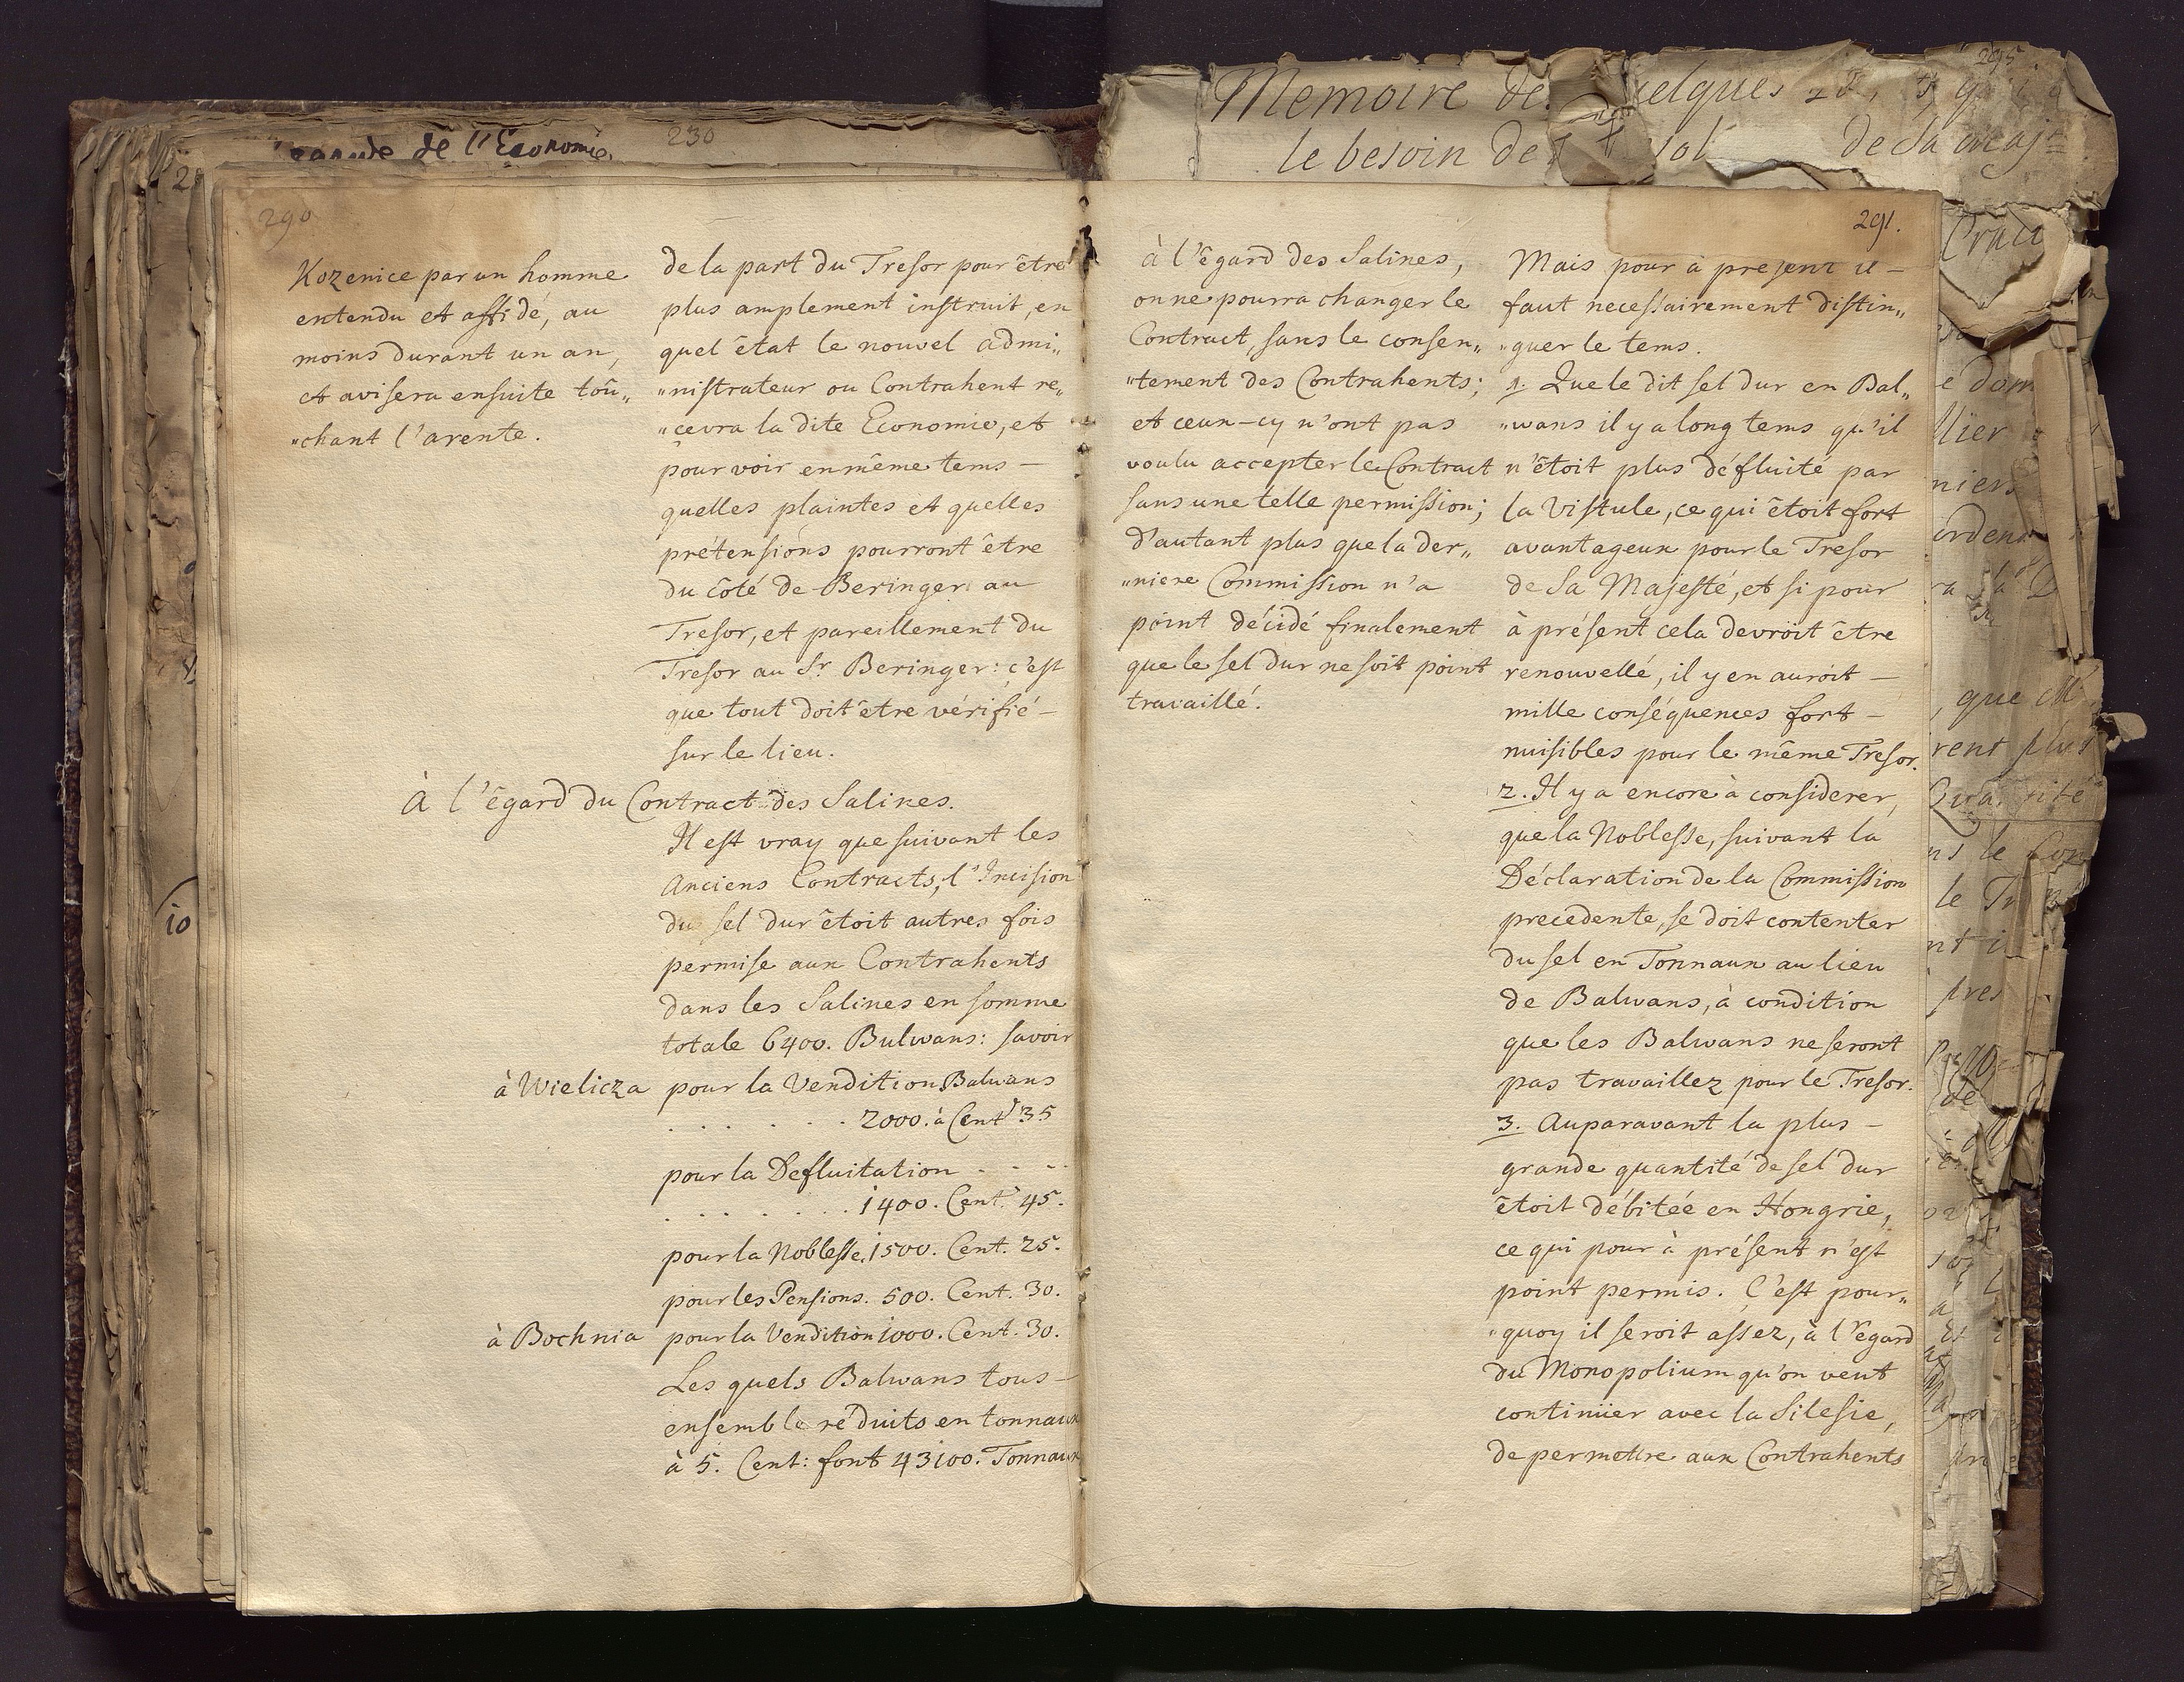 230
290
Kozenice par un homme
entendu et affidé, au
moins durant un an,
et avisera ensuite toû„
„chant l'arente.
de la part du Tresor pour être
plus amplement instruit, en
quel êtat le nouvel admi„
„nistrateur ou Contrahent re„
„cevra la dite Economie, et
pour voir en même tems –
quelles plaintes et quelles
prétensions pourront être
du côté de Beringer au
Tresor, et pareillement du
Tresor au Sr. Beringer: c'est
que tout doit être vérifié –
sur le lieu.
À l'êgard du Contract des Salines.
Il est vray que suivant les
Anciens Contracts, l'Incision
du sel dur êtoit autres fois
permise aux Contrahents
dans les Salines en somme
totale 6400. Bulwans: savoir
à Wielicza pour la Vendition Balwans
. . . . . . . 2000. à Cent. 35
pour la Defluitation . . . .
. . . . . . . 1400. Cent. 45.
pour la Noblesse. 1500. Cent. 25.
pour les Pensions. 500. Cent. 30.
à Bochnia pour la Vendition 1000. Cent. 30.
Les quels Balwans tous –
ensemble réduits en tonnaux
à 5. Cent: font 43100. Tonnaux
Memoire de
le besoin de de Sa Maj
295
291.
à l'êgard des Salines,
on ne pourra changer le
Contract, sans le consen„
„tement des Contrahents;
et ceux-cy n'ont pas
voulu accepter le Contract
sans une telle permission;
d'autant plus que la der„
„niere Commission n'a
point décidé finalement
que le sel dur ne soit point
travaillé.
Mais pour à present il –
faut necessairement distin„
„guer le tems.
1. Que le dit sel dur en Bal„
„wans il y a long tems qu'il
n'êtoit plus défluité par
la Vistule, ce qui êtoit fort
avantageux pour le Tresor
de Sa Majesté, et si pour
à présent cela devroit être
renouvellé, il y en auroit –
mille conséquences fort –
nuisibles pour le même Tresor.
2. Il y a encore à considerer,
que la Noblesse, suivant la
Déclaration de la Commission
precedente, se doit contenter
du sel en Tonnaux au lieu
de Balwans, à condition
que les Balwans ne seront
pas travaillez pour le Tresor.
3. Auparavant la plus –
grande quantité de sel dur
êtoit débitée en Hongrie,
ce qui pour à présent n'est
point permis. C'est pour„
„quoy il seroit assez, à l'egard
du Monopolium qu'on veut
continüer avec la Silesie,
de permettre aux Contrahents